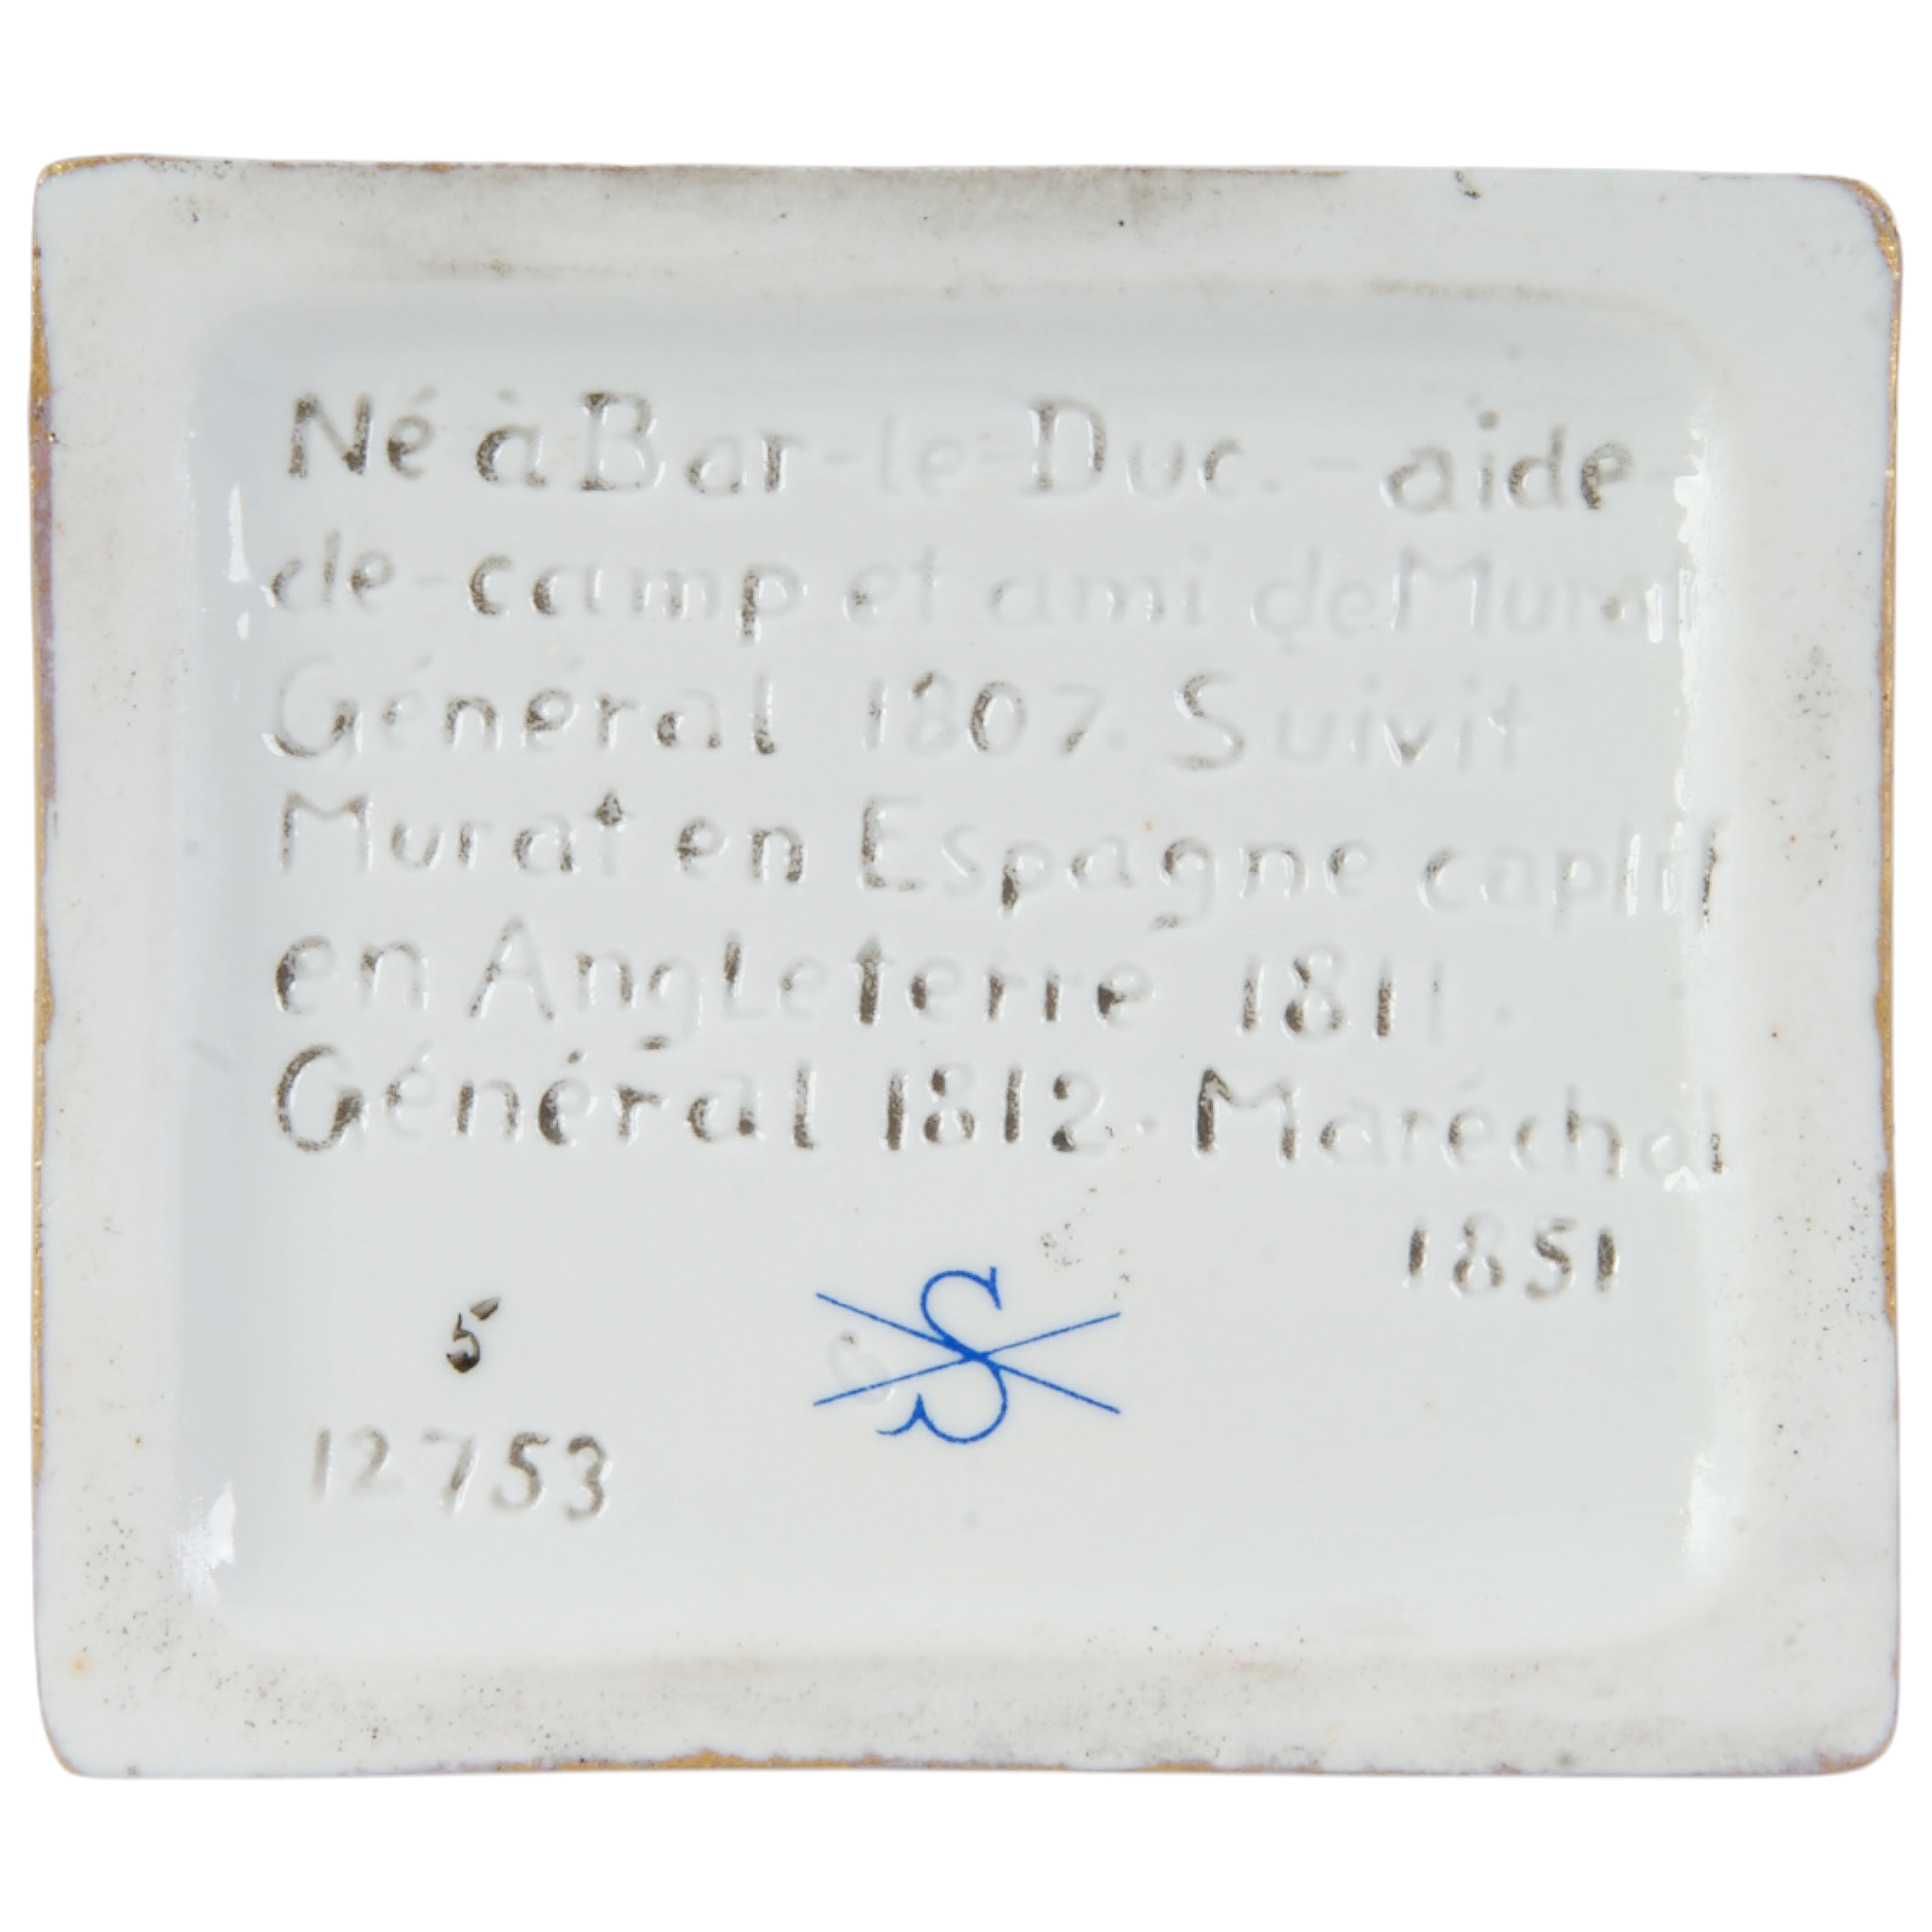 Né à Bar-le-Duc. - aide-
de-camp et ami de Murat
Général 1807. Suivit
Murat en Espagne captif
en Angleterre 1811.
Général 1812. Maréchal
1851
5
S
12753